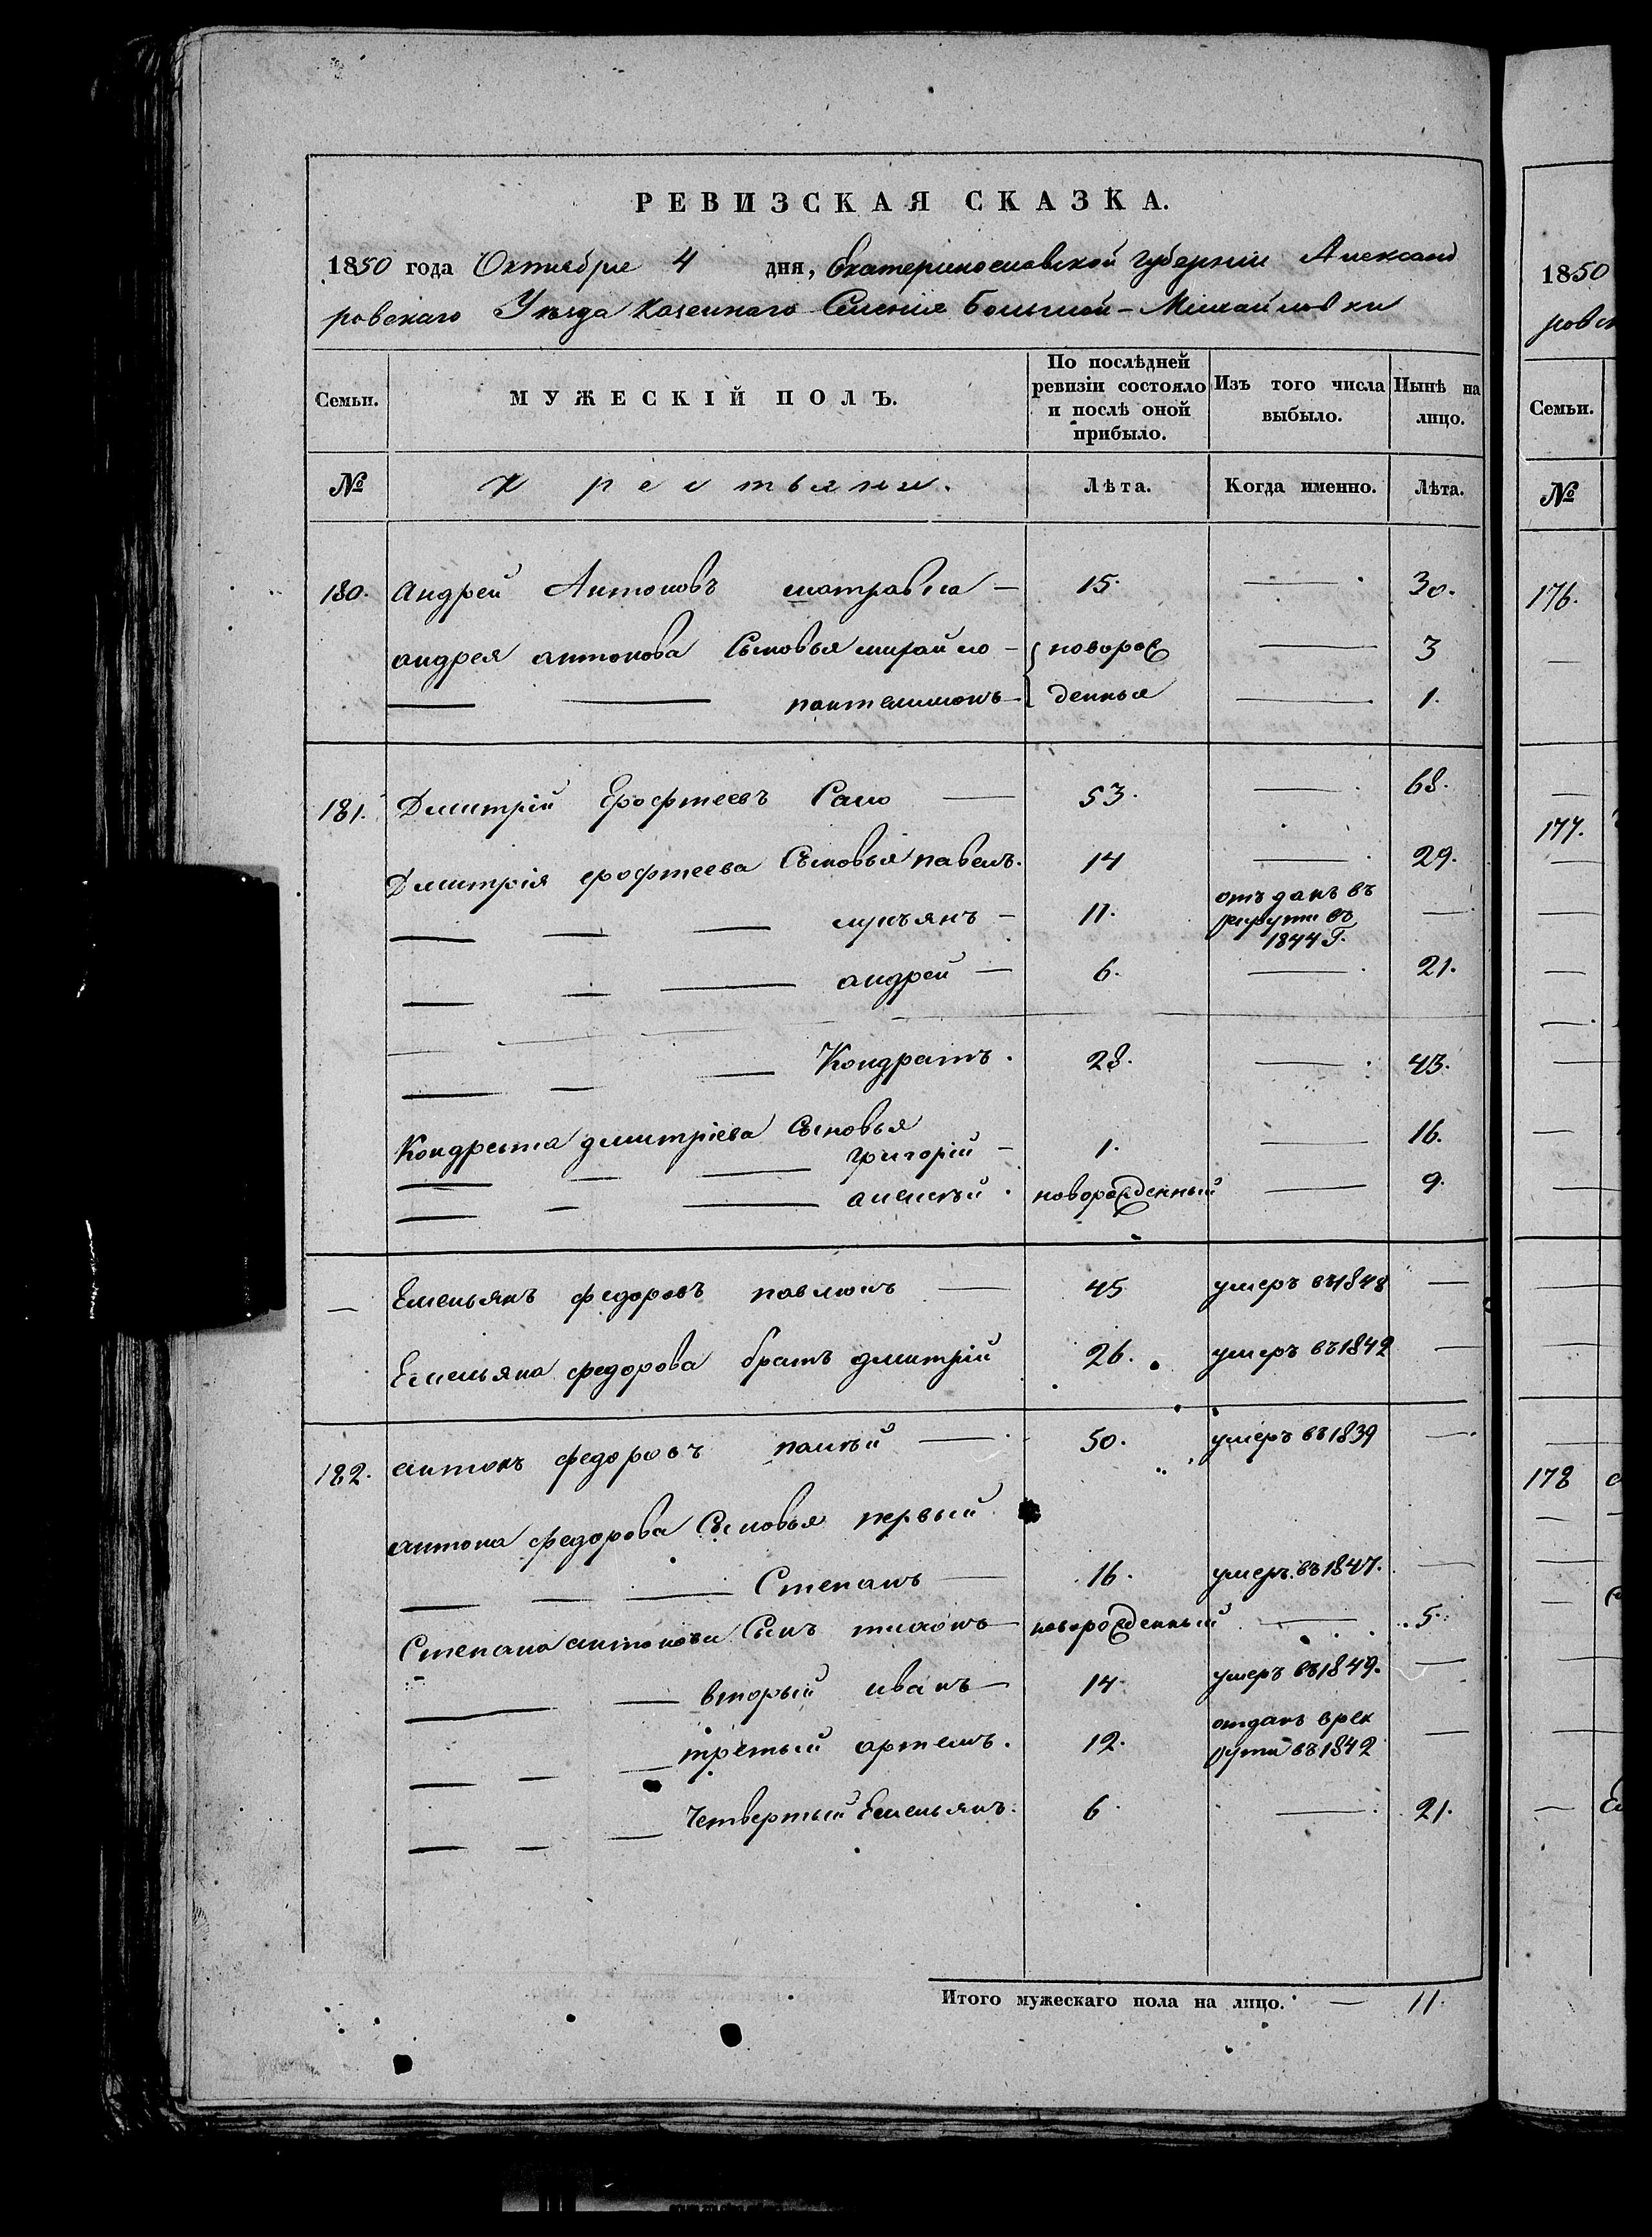 РЕВИЗСКАЯ СКАЗКА.
1850 года Октября 4 дня, Екатеринославской Губерніи Александ
ровскаго Уѣзда Казеннаго Селенія Большой-Михайловки
Семьи.
МУЖЕСКІЙ ПОЛЪ.
По послѣдней ревизіи состояло и послѣ оной прибыло.
Изъ того числа выбыло.
Нынѣ на лицо.
№ Крестьяни. Лѣта. Когда именно. Лѣта.
180. Андрей Антоновъ — 15. — 30.
андрея антонова Сыновья михайло — новорож — 3
— — пантелимонъ — денныя — 1.
181. Дмитрій Ерофтеевъ Сало — 53. — 68.
Дмитрія ерофтеева Сыновья павелъ. 14 — 29.
— — — лукъянъ — 11. отъданъ въ рекруты въ 1844 Г. —
— — — андрей — 6. — 21.
— — — Кондратъ. 28. — 43.
Кондрата дмитріева Сыновья
— — — григорій — 1. — 16.
— — — алексѣй. новорожденный — 9.
— Емельянъ федоровъ павлюкъ — 45 умеръ въ 1848 —
Емельяна федорова братъ дмитрій 26. умеръ въ 1842 —
182. антонъ федоровъ палѣй — 50. умеръ въ 1839 —
антона федорова Сыновья первый
— — — Степанъ — 16. умеръ въ 1847. —
Степана антонова Сынъ тихонъ — новорожденный — 5.
— — вторый иванъ — 14. умеръ въ 1849. —
— — — третый артемъ. 12. отданъ врек руты въ 1842 —
— — — Четвертый Емельянъ. 6. — 21.
Итого мужескаго пола на лицо. — 11.
1850
Семьи.
№
176.
177.
178